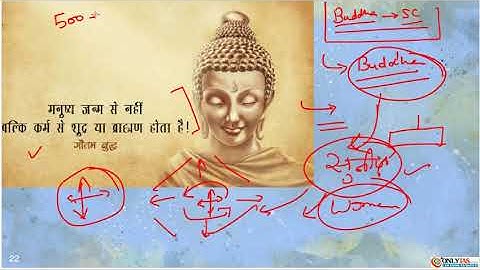 500
Buddha → SC
Buddha
मनुष्य जन्म से नहीं
बल्कि कर्म से शूद्र या ब्राह्मण होता है!
गौतम बुद्ध
Women
22
ONLYIAS